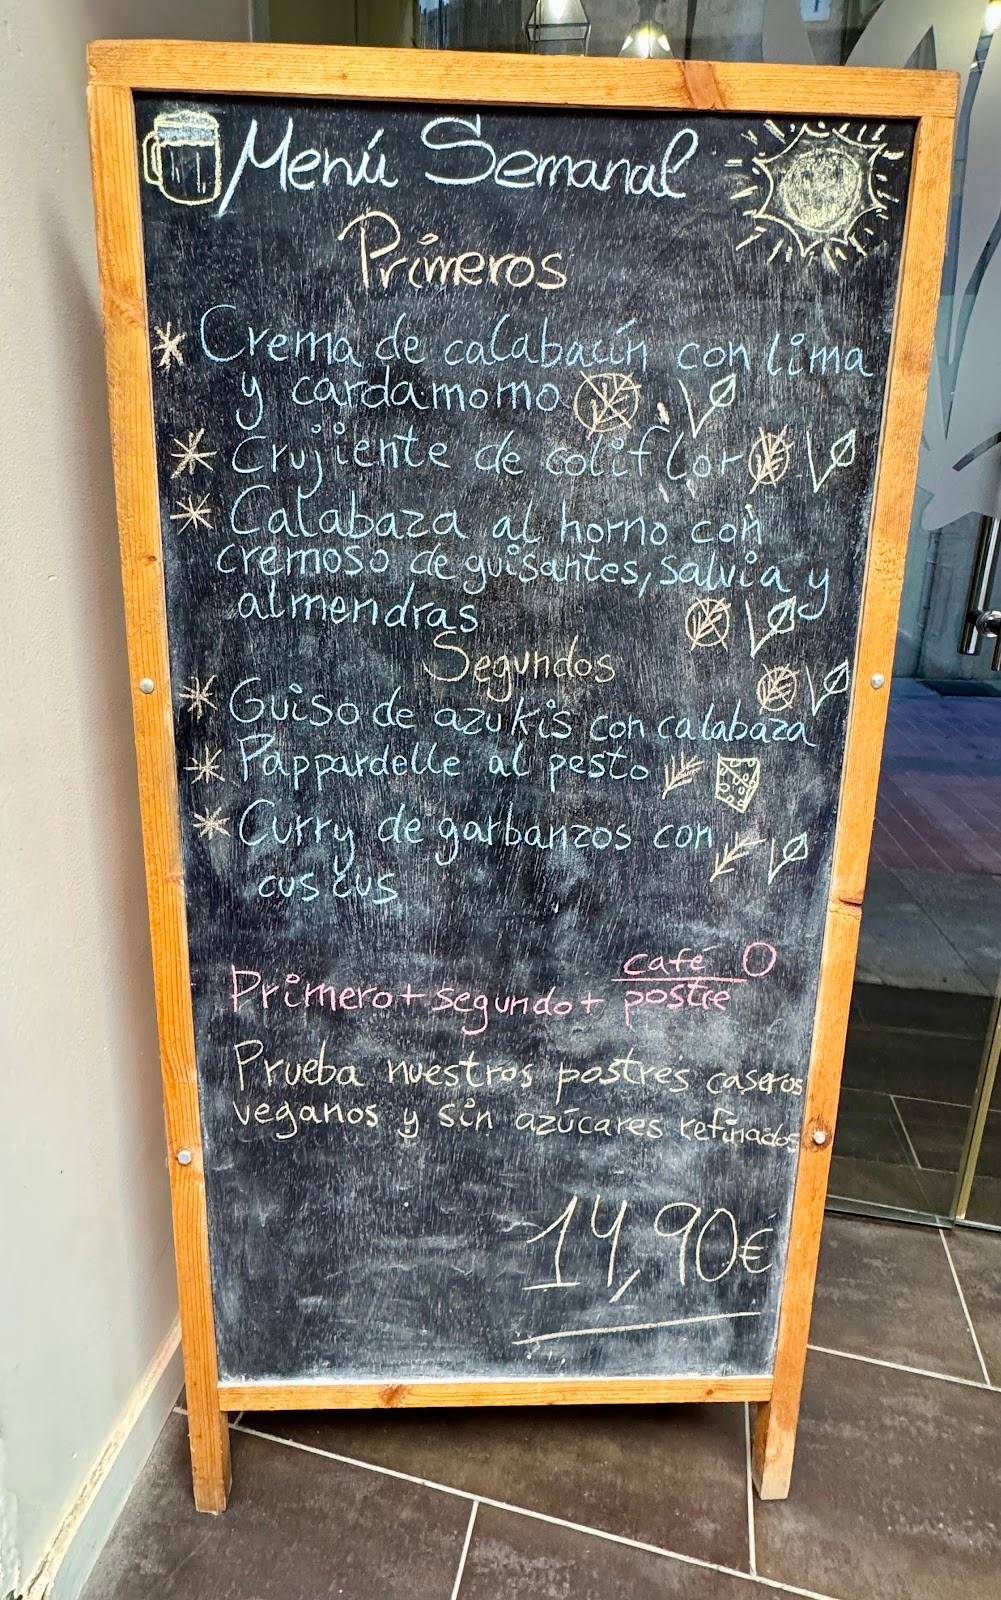 Menú Semanal
Primeros
Crema de calabacín con lima
y cardamomo
Crujiente de coliflor
Calabaza al horno con
cremoso de guisantes, salvia y
almendras
Segundos
Guiso de azukis con calabaza
Pappardelle al pesto
Curry de garbanzos con
cus cus
café O
Primero + segundo + postre
Prueba nuestros postres caseros
veganos y sin azúcares refinados
14,90€